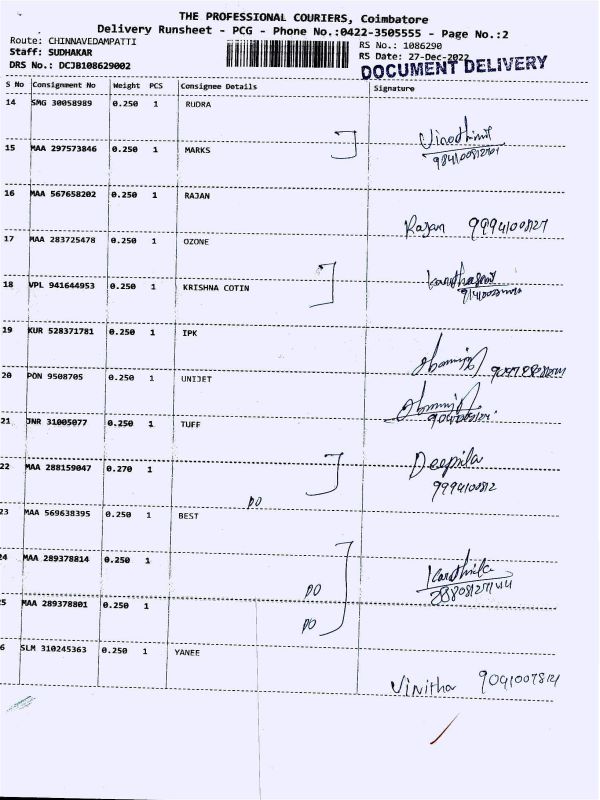 THE PROFESSIONAL COURIERS, Coimbatore
Delivery Runsheet - PCG - Phone No.:0422-3505555 - Page No.:2
Route: CHINNAVEDAMPATTI
RS No.: 1086290
Staff: SUDHAKAR
RS Date: 27-Dec-2022
DRS No.: DCJB108629002
DOCUMENT DELIVERY
S No Consignment No Weight PCS Consignee Details Signature
14 SMG 30058989 0.250 1 RUDRA
15 MAA 297573846 0.250 1 MARKS
16 MAA 567658202 0.250 1 RAJAN
Rajan
17 MAA 283725478 0.250 1 OZONE
18 VPL 941644953 0.250 1 KRISHNA COTIN
19 KUR 528371781 0.250 1 IPK
20 PON 9508705 0.250 1 UNIJET
21 JNR 31005077 0.250 1 TUFF
22 MAA 288159047 0.270 1
DO
Deepika
23 MAA 569638395 0.250 1 BEST
24 MAA 289378814 0.250 1
DO
5 MAA 289378801 0.250 1
DO
6 SLM 310245363 0.250 1 YANEE
Vinitha